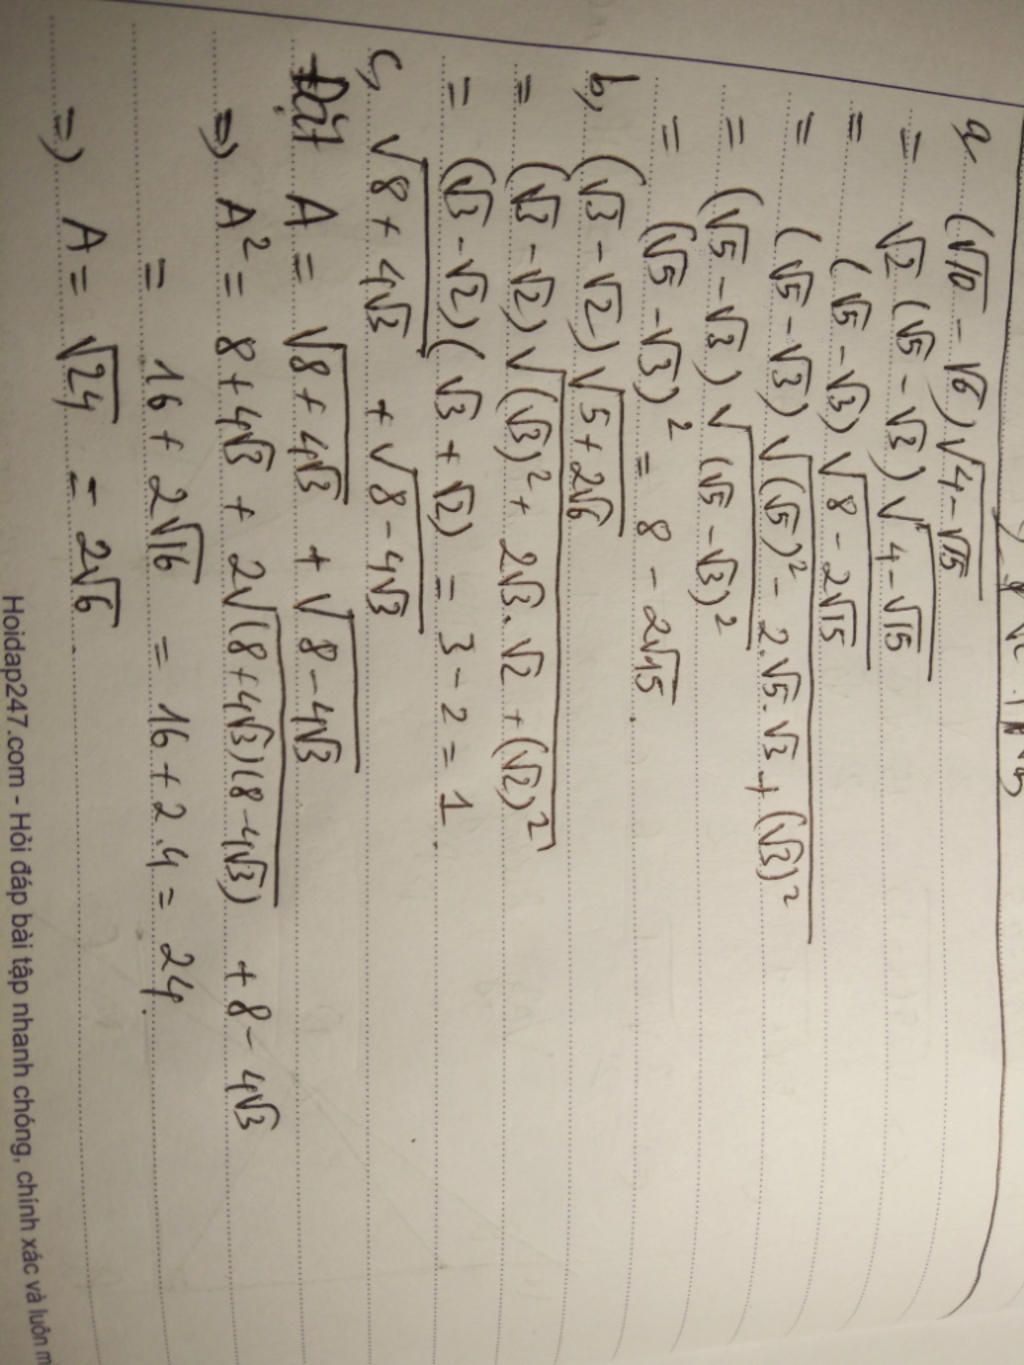 a, (√10 - √6)√(4-√15)
= √2 (√5 - √3) √(4-√15)
= (√5 - √3) √(8 - 2√15)
= (√5 - √3) √((√5)² - 2.√5.√3 + (√3)²)
= (√5 - √3) √(√5 - √3)²
= (√5 - √3)² = 8 - 2√15.
b, (√3 - √2) √(5 + 2√6)
= (√3 - √2) √((√3)² + 2√3.√2 + (√2)²)
= (√3 - √2) (√3 + √2) = 3 - 2 = 1.
c, √(8 + 4√3) + √(8 - 4√3)
Đặt A = √(8 + 4√3) + √(8 - 4√3)
=> A² = 8 + 4√3 + 2√((8 + 4√3)(8 - 4√3)) + 8 - 4√3
= 16 + 2√16 = 16 + 2.4 = 24.
=> A = √24 = 2√6.
Hoidap247.com - Hỏi đáp bài tập nhanh chóng, chính xác và luôn m